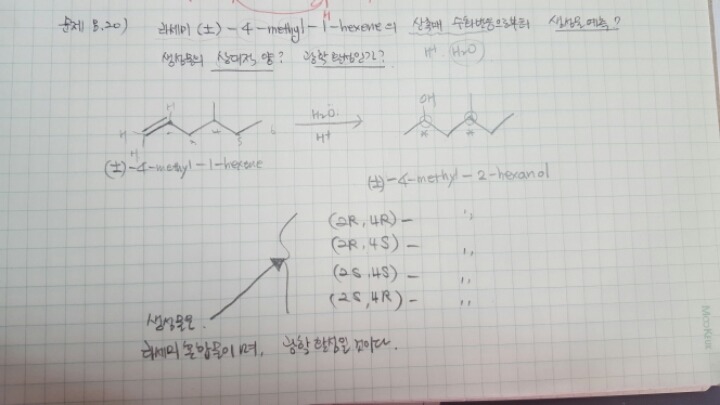 문제 8.20) 라세미 (±)-4-methyl-1-hexene의 산촉매 수화반응으로부터 생성물 예측?
H⁺ H₂O
생성물의 상대적 양? 광학 활성인가?
H H H
OH
H₂O
H⁺
(±)-4-methyl-1-hexene
(±)-4-methyl-2-hexanol
(2R, 4R) - 〃
(2R, 4S) - 〃
(2S, 4S) - 〃
(2S, 4R) - 〃
생성물은
라세미 혼합물이며, 광학 활성일 것이다.